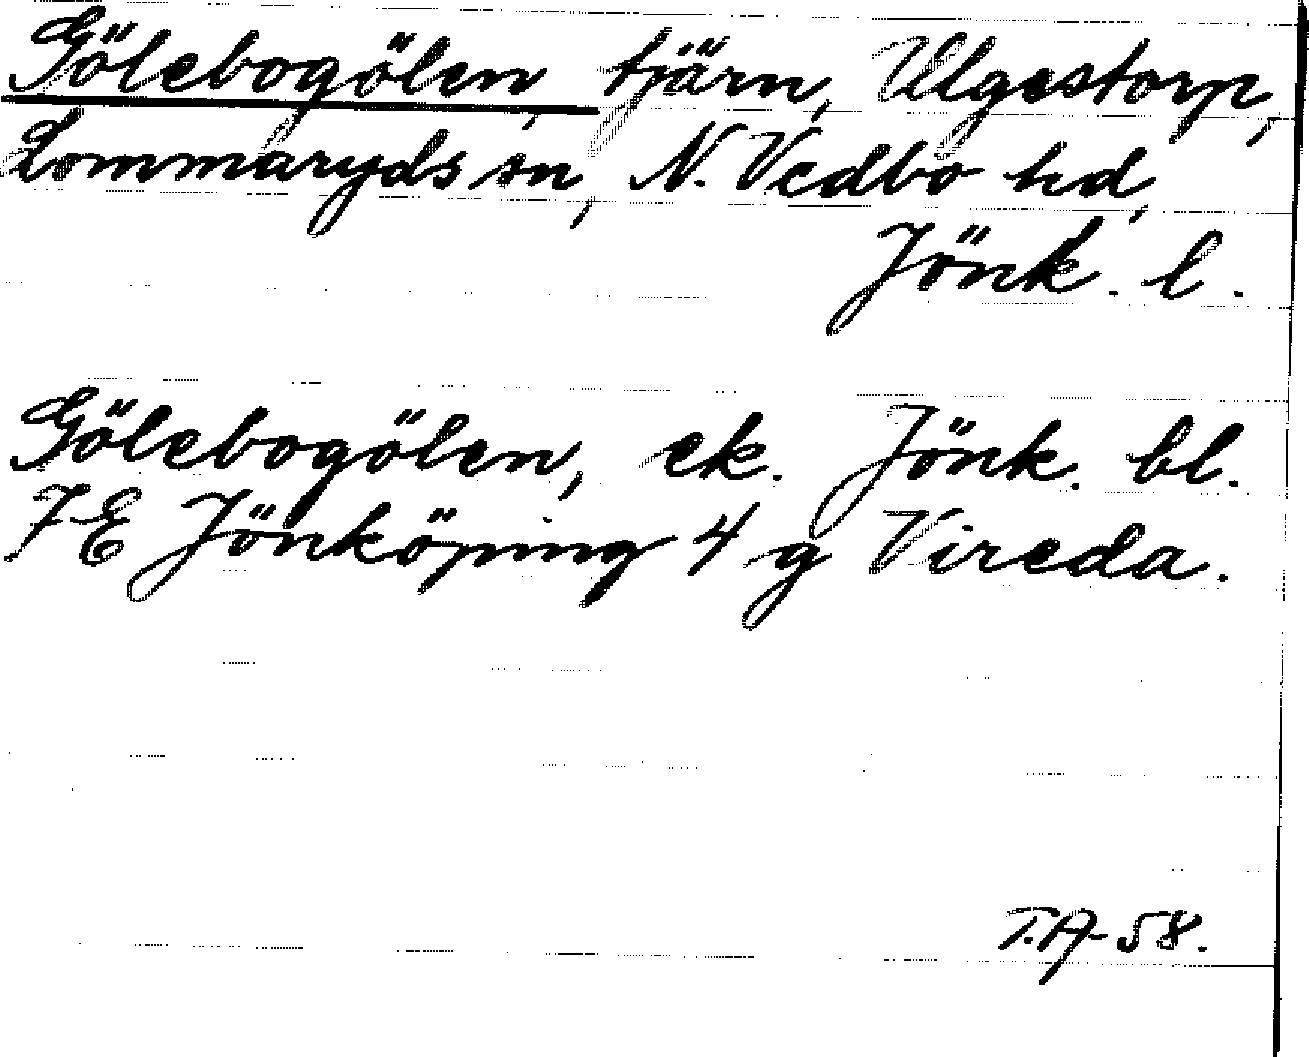 Gölebogölen, tjärn, Ulgestorp,
Lommaryds sn, N. Vedbo hd,
Jönk. l.
Gölebogölen, ek. Jönk. bl.
7E Jönköping 4 g Vireda.
T.A-58.